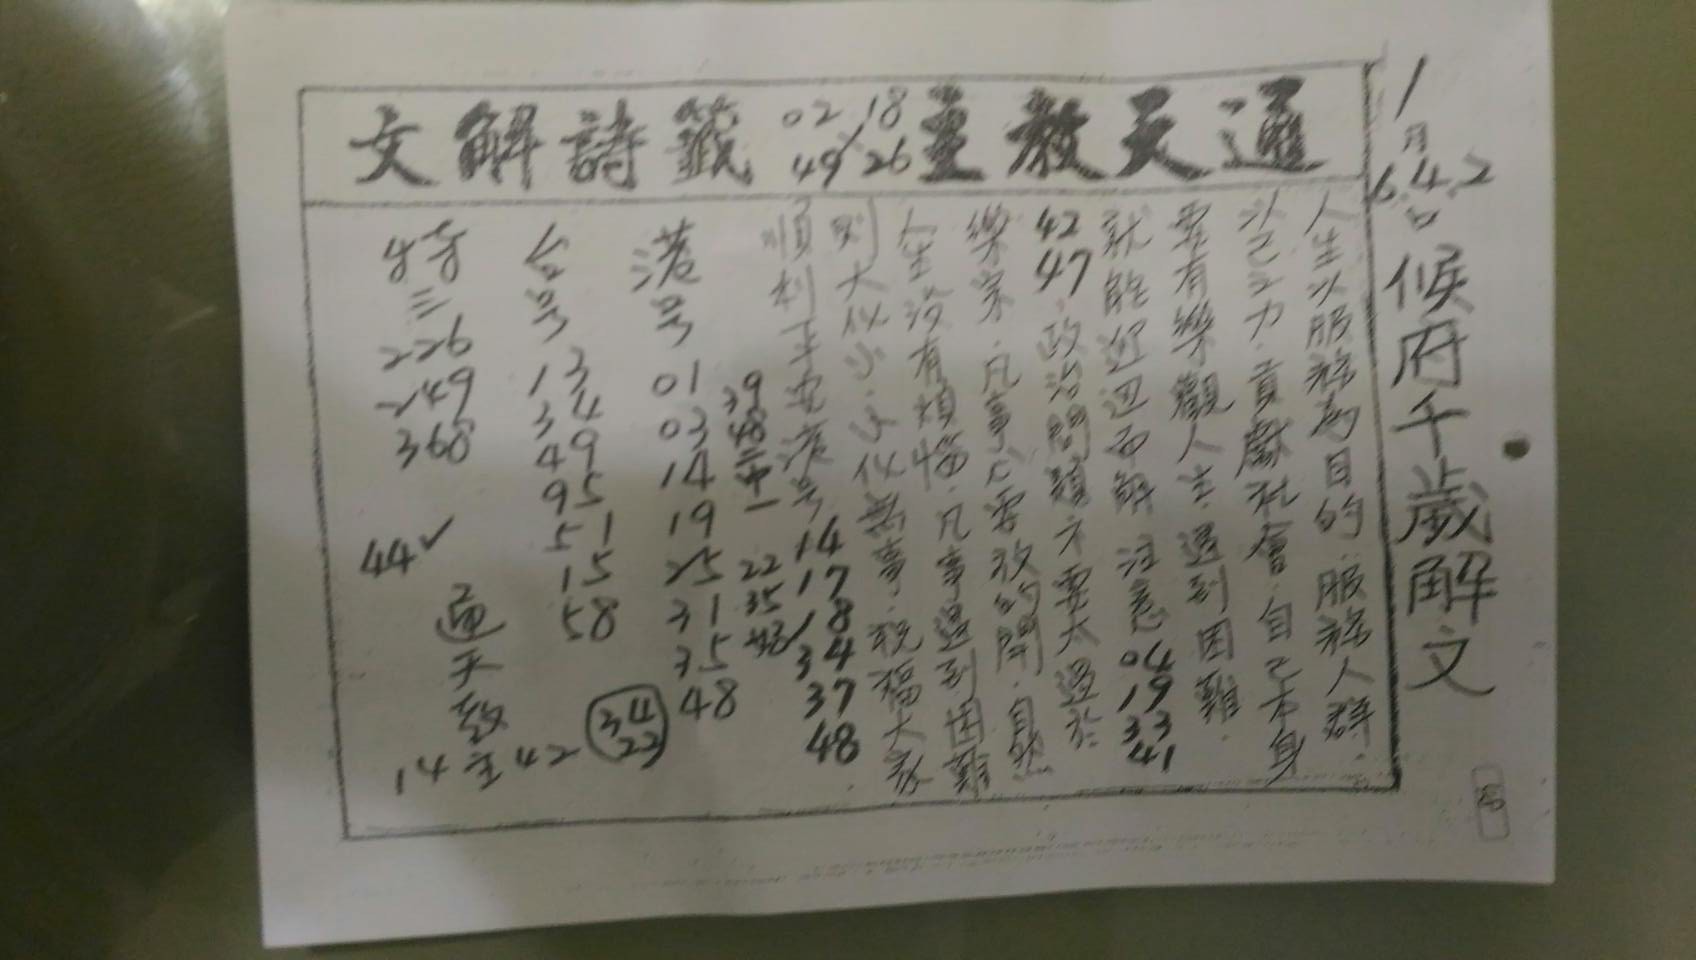 1月6.4.2日
候府千歲解文
通天教主
18 26
02 49
籤詩解文
人生以服務為目的.服務人群.
以己之力.貢獻社會.自己本身
要有樂觀人生.遇到困難.
就能迎迎而解 注意 04 19 33 41
42 47.政治問題不要太過於
樂宗.凡事必需放的開.自然
人生沒有煩惱.凡事遇到困難
則大化小.小化無事.祝福大家
順利平安 港号 14 17 18 34 37 48
39 48 二中一 22 35
港号 01 03 14 19 25 31 35 48
台号 13 34 49 95 51 15 58
34 22
特三 226 249 368
44✓
通天教主
14 42
印